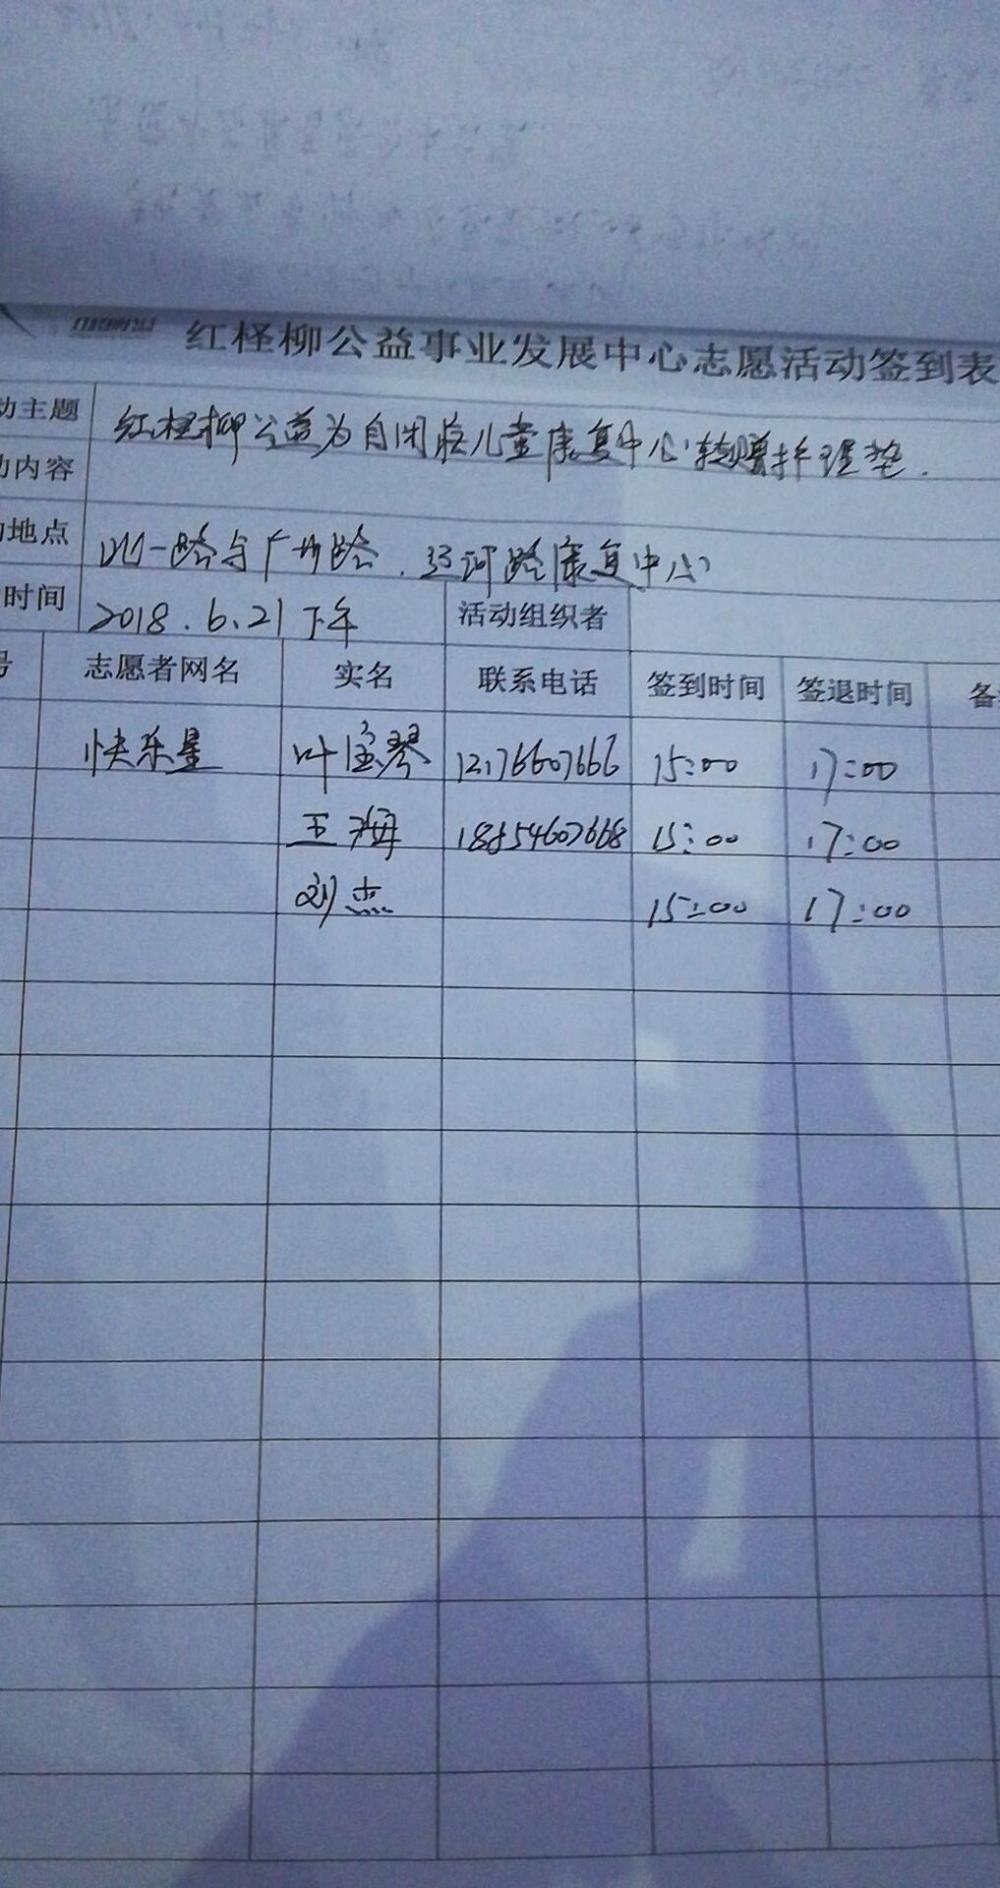 红柽柳公益事业发展中心志愿活动签到表
动主题 红柽柳公益为自闭症儿童康复中心转赠护理垫.
动内容
地点 一路与广州路. 路康复中心
时间 2018.6.21下午 活动组织者
号 志愿者网名 实名 联系电话 签到时间 签退时间 备
快乐星 叶宝琴 12176607666 15:00 17:00
王海 18854607668 15:00 17:00
刘杰 15:00 17:00